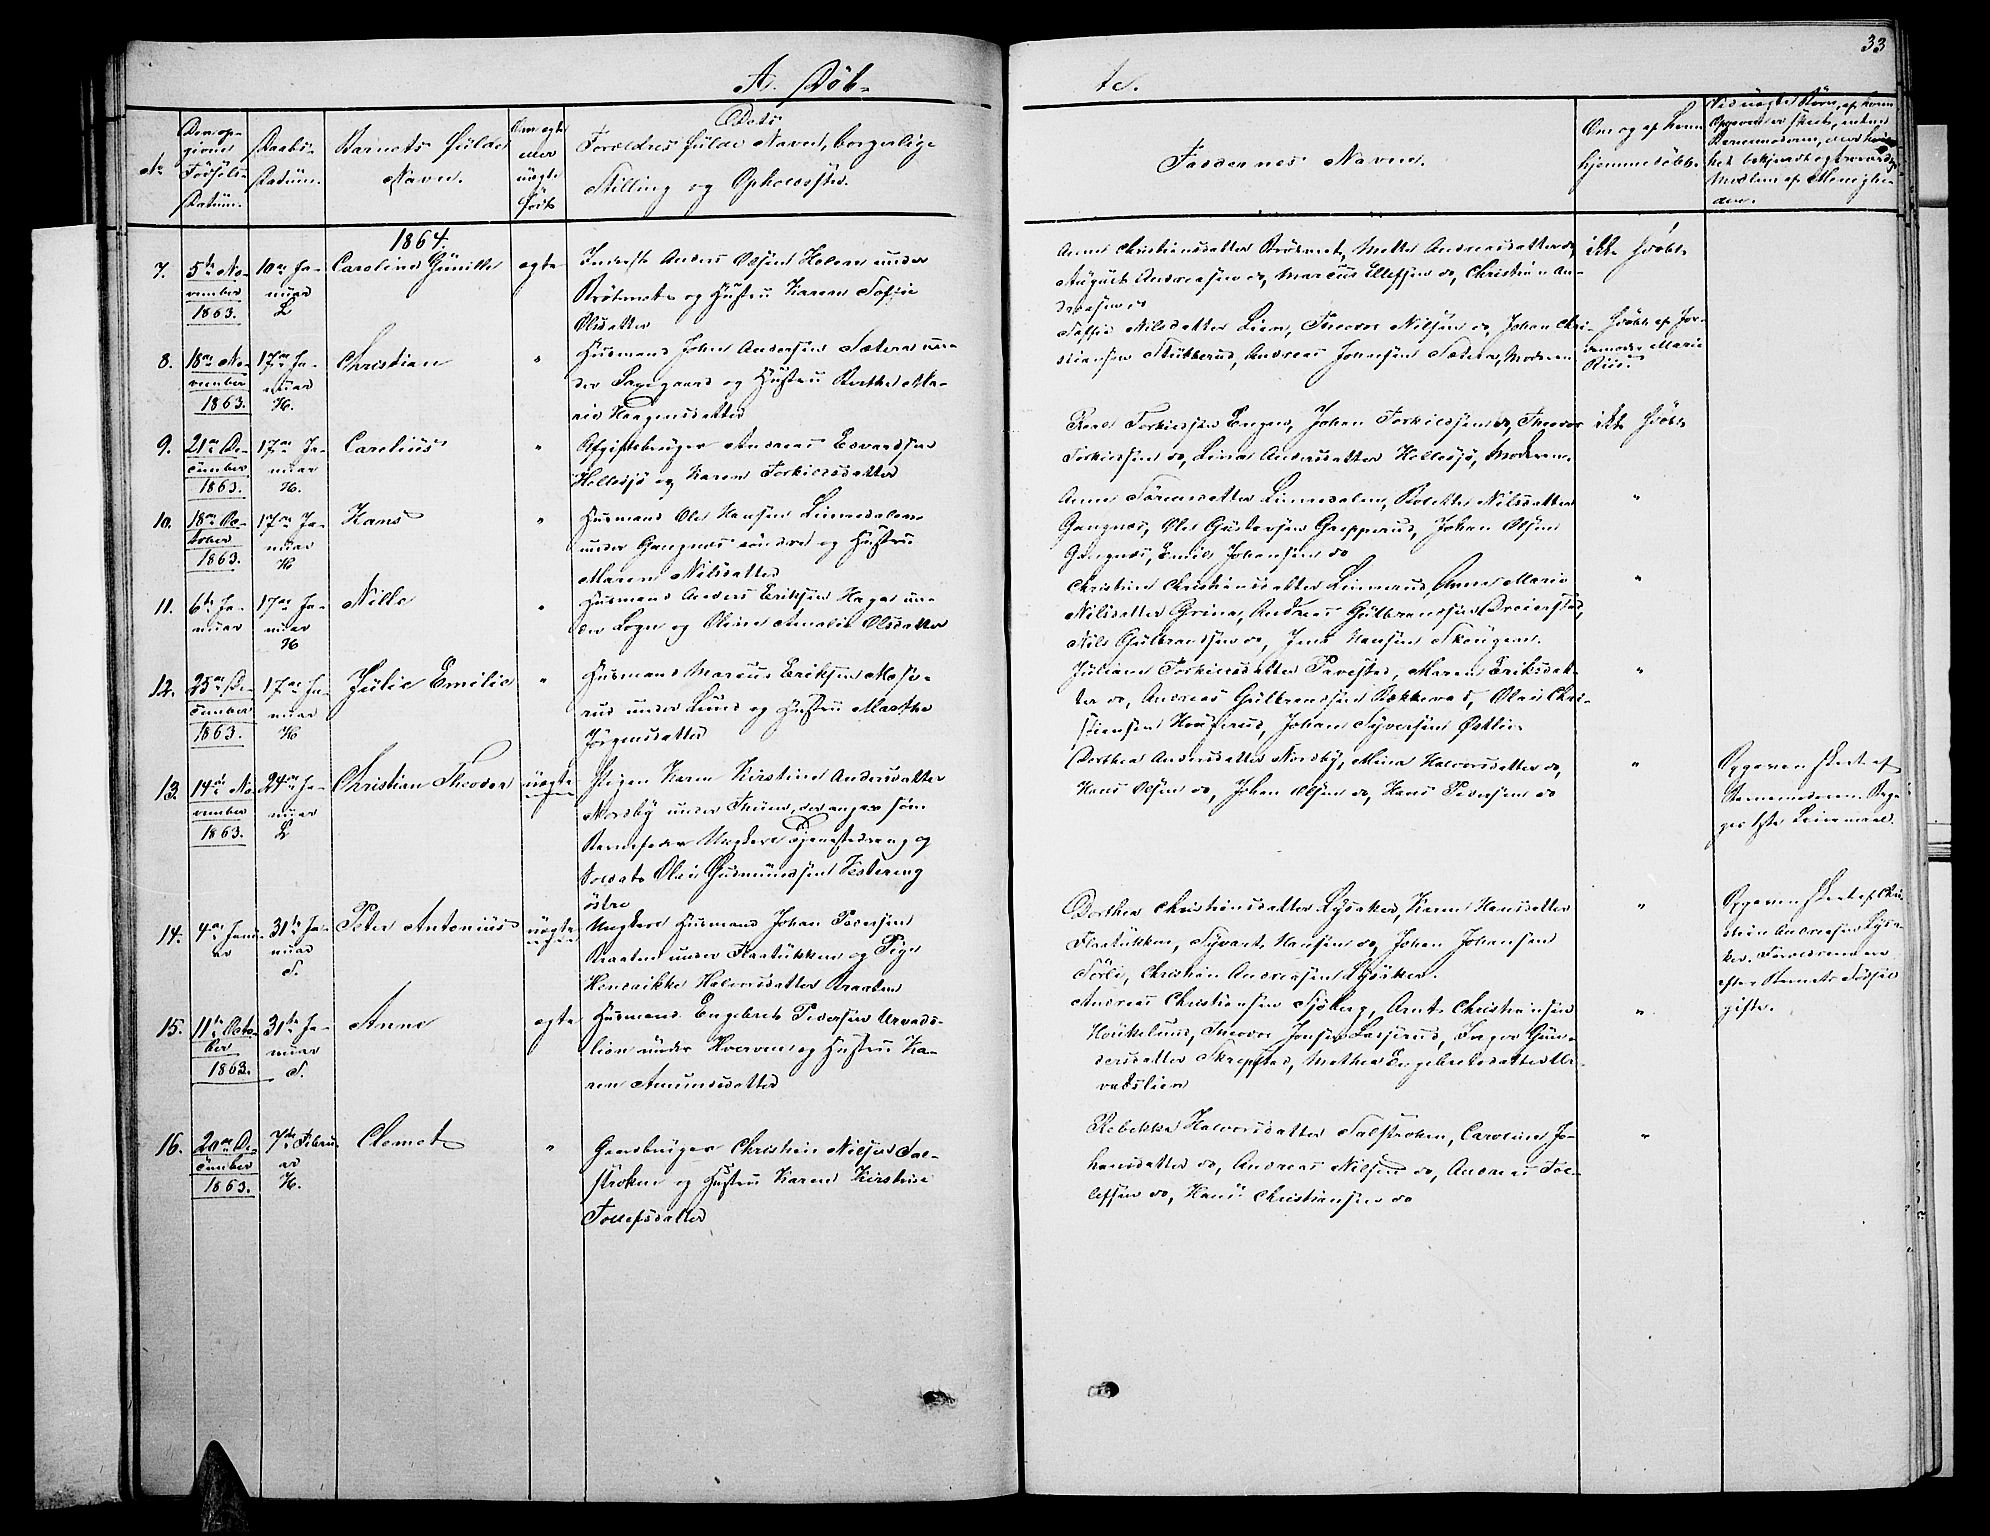 33
A. Döb-
te.
No
Den op-
givne
Födsels-
Datum.
Daabs-
Datum.
Barnets fulde
Navn.
Om ægte
eller
uægte
födt
Dets
Forældres fulde Navne, borgerlige
Stilling og Opholdssted.
Faddernes Navne.
Om og af hvem
hjemmedöbt.
1864.
7.
5te No-
vember
1863.
10de Ja-
nuar
L
Caroline Gunille
ægte
Inderst Anders Olsen Holen under
Brötmet og Hustru Karen Sofie
Olsdatter
Anne Christiansdatter Brödmet, Mette Andreasdatter do,
August Andreasen do, Marcus Ellefsen do, Christian An-
dreasen do
ikke hjdöbt
8.
18de No-
vember
1863.
17de Ja-
nuar
H.
Christian
"
Husmand Johan Andersen Sætern un-
der Saxegaard og Hustru Berthe Ma-
rie Haagensdatter
Sofie Nilsdatter Lien, Theodor Nilsen do, Johan Chri-
stiansen Stubberud, Andreas Johansen Sætern, Moderen
hjdöbt af Jor-
demoder Marie
Ruud.
9.
21de De-
cember
1863.
17de Ja-
nuar
H.
Carelius
"
Afgiftsbruger Andreas Edvardsen
Hollesjö og Karen Torkildsdatter
Karl Torkildsen Engen, Johan Torkildsen do, Theodor
Torkildsen do, Lina Andersdatter Hollesjö, Moderen.
ikke hjdöbt
10.
18de Oc-
tober
1863.
17de Ja-
nuar
H
Hans
"
Husmand Ole Hansen Linnedalen
under Gangnæs söndre og Hustru
Maren Nilsdatter
Anne Sörensdatter Linnedalen, Bolette Nilsdatter
Gangnæs, Ole Gustavsen Gropperud, Johan Olsen
Gangnæs, Emil Johansen do
"
11.
6te Ja-
nuar
17de Ja-
nuar
H
Nille
"
Husmand Anders Eriksen Hagen un-
der Sogn og Oline Amalie Olsdatter
Christine Christiansdatter Linnerud, Anne Marie
Nilsdatter Grina, Andreas Gulbrandsen Dreierstad,
Nils Gulbrandsen do, Jens Hansen Skougen.
"
12.
25de De-
cember
1863.
17de Ja-
nuar
H
Julie Emilie
"
Husmand Marcus Eriksen Mose-
rud under Lund og Hustru Marthe
Jörgensdatter
Juliane Torkildsdatter Pavestad, Maren Eriksdat-
ter do, Andreas Gulbrandsen Bækkevad, Olaus Chri-
stiansen Houserud, Johan Syversen Östlie.
"
13.
14de No-
vember
1863.
24de Ja-
nuar
L
Christian Theodor
uægte
Pigen Karen Kirstine Andersdatter
Norsby under Thune, der angav som
Barnefader Ungkarl Tjenestedreng og
Soldat Olaus Gudmundsen Kestering
östre
Dorthea Andersdatter Norsby, Mina Halvorsdatter do,
Hans Olsen do, Johan Olsen do, Hans Pedersen do
"
Opgaven skeet af
Barnemoderen. Beg-
ges 1ste Leiermaal.
14.
4de Janu-
ar
31te Ja-
nuar
S.
Peter Antonius
uægte
Ungkarl Husmand Johan Pedersen
Braaten under Flaatükken og Pige
Hendrikke Halvorsdatter Braaten
Dorthea Christiansdatter Lysaker, Karen Hansdatter
Flaatükken, Syvert Hansen do, Johan Johansen
Sörli, Christian Andreasen Lysaker.
"
Opgaven skeet af Chri-
stian Andreasen Lysa-
ker. Forældrene ere
efter Barnets Födsel
gifte.
15.
11te Octo-
ber
1863.
31te Ja-
nuar
S.
Anne
ægte
Husmand Engebret Pedersen Urvads-
lien under Hverven og Hustru Ka-
ren Amundsdatter
Andreas Christiansen Sjöberg, Arnt Christiansen
Houkelund, Theodor Jonsen Lasserud, Inger Gun-
dersdatter Skrepstad, Mathea Engebretsdatter Ur-
vadslien
"
16.
20de De-
cember
1863.
7de Februar
ar
H.
Clemet
"
Gaardbruger Christian Nilsen Sal-
stroken og Hustru Karen Kirstine
Tollefsdatter
Rebekka Halvorsdatter Salstroken, Caroline Jo-
hansdatter do, Andreas Nilsen do, Andreas Tol-
lefsen do, Hans Christiansen do
"